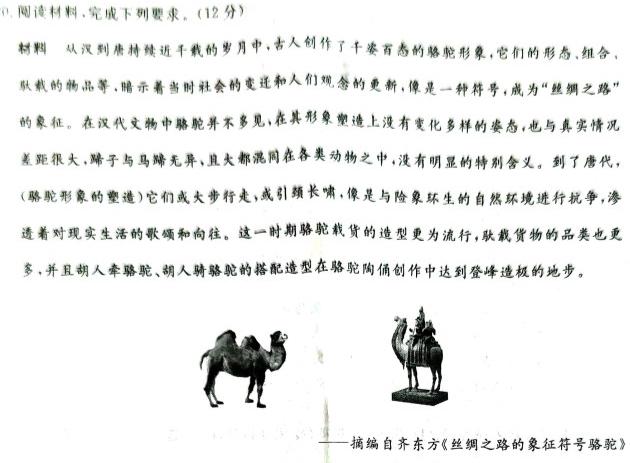 0. 阅读材料,完成下列要求。(12分)
材料 从汉到唐持续近千载的岁月中,古人创作了千姿百态的骆驼形象,它们的形态、组合、
驮载的物品等,暗示着当时社会的变迁和人们观念的更新,像是一种符号,成为“丝绸之路”
的象征。在汉代文物中骆驼并不多见,在其形象塑造上没有变化多样的姿态,也与真实情况
差距很大,蹄子与马蹄无异,且大都混同在各类动物之中,没有明显的特别含义。到了唐代,
(骆驼形象的塑造)它们或大步行走,或引颈长啸,像是与险象环生的自然环境进行抗争,渗
透着对现实生活的歌颂和向往。这一时期骆驼载货的造型更为流行,驮载货物的品类也更
多,并且胡人牵骆驼、胡人骑骆驼的搭配造型在骆驼陶俑创作中达到登峰造极的地步。
——摘编自齐东方《丝绸之路的象征符号骆驼》